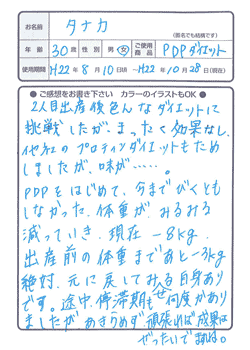 お名前 タナカ
(匿名でも結構です)
年齢 30歳 性別 男・女 ご使用商品 PDPダイエット
使用期間 H22年8月10日頃〜H22年10月28日(現在)
●ご感想をお書き下さい カラーのイラストもOK●
2人目出産後色んなダイエットに
挑戦したが、まったく効果なし。
他社のプロテインダイエットもため
しましたが、味が……。
PDPをはじめて、今までびくとも
しなかった体重が、みるみる
減っていき、現在 −8kg。
出産前の体重まであと−3kg
絶対、元に戻してみる自身あり
です。途中、停滞期も何度かあり
ましたがあきらめず、頑張れば成果は
ぜったいでますね。